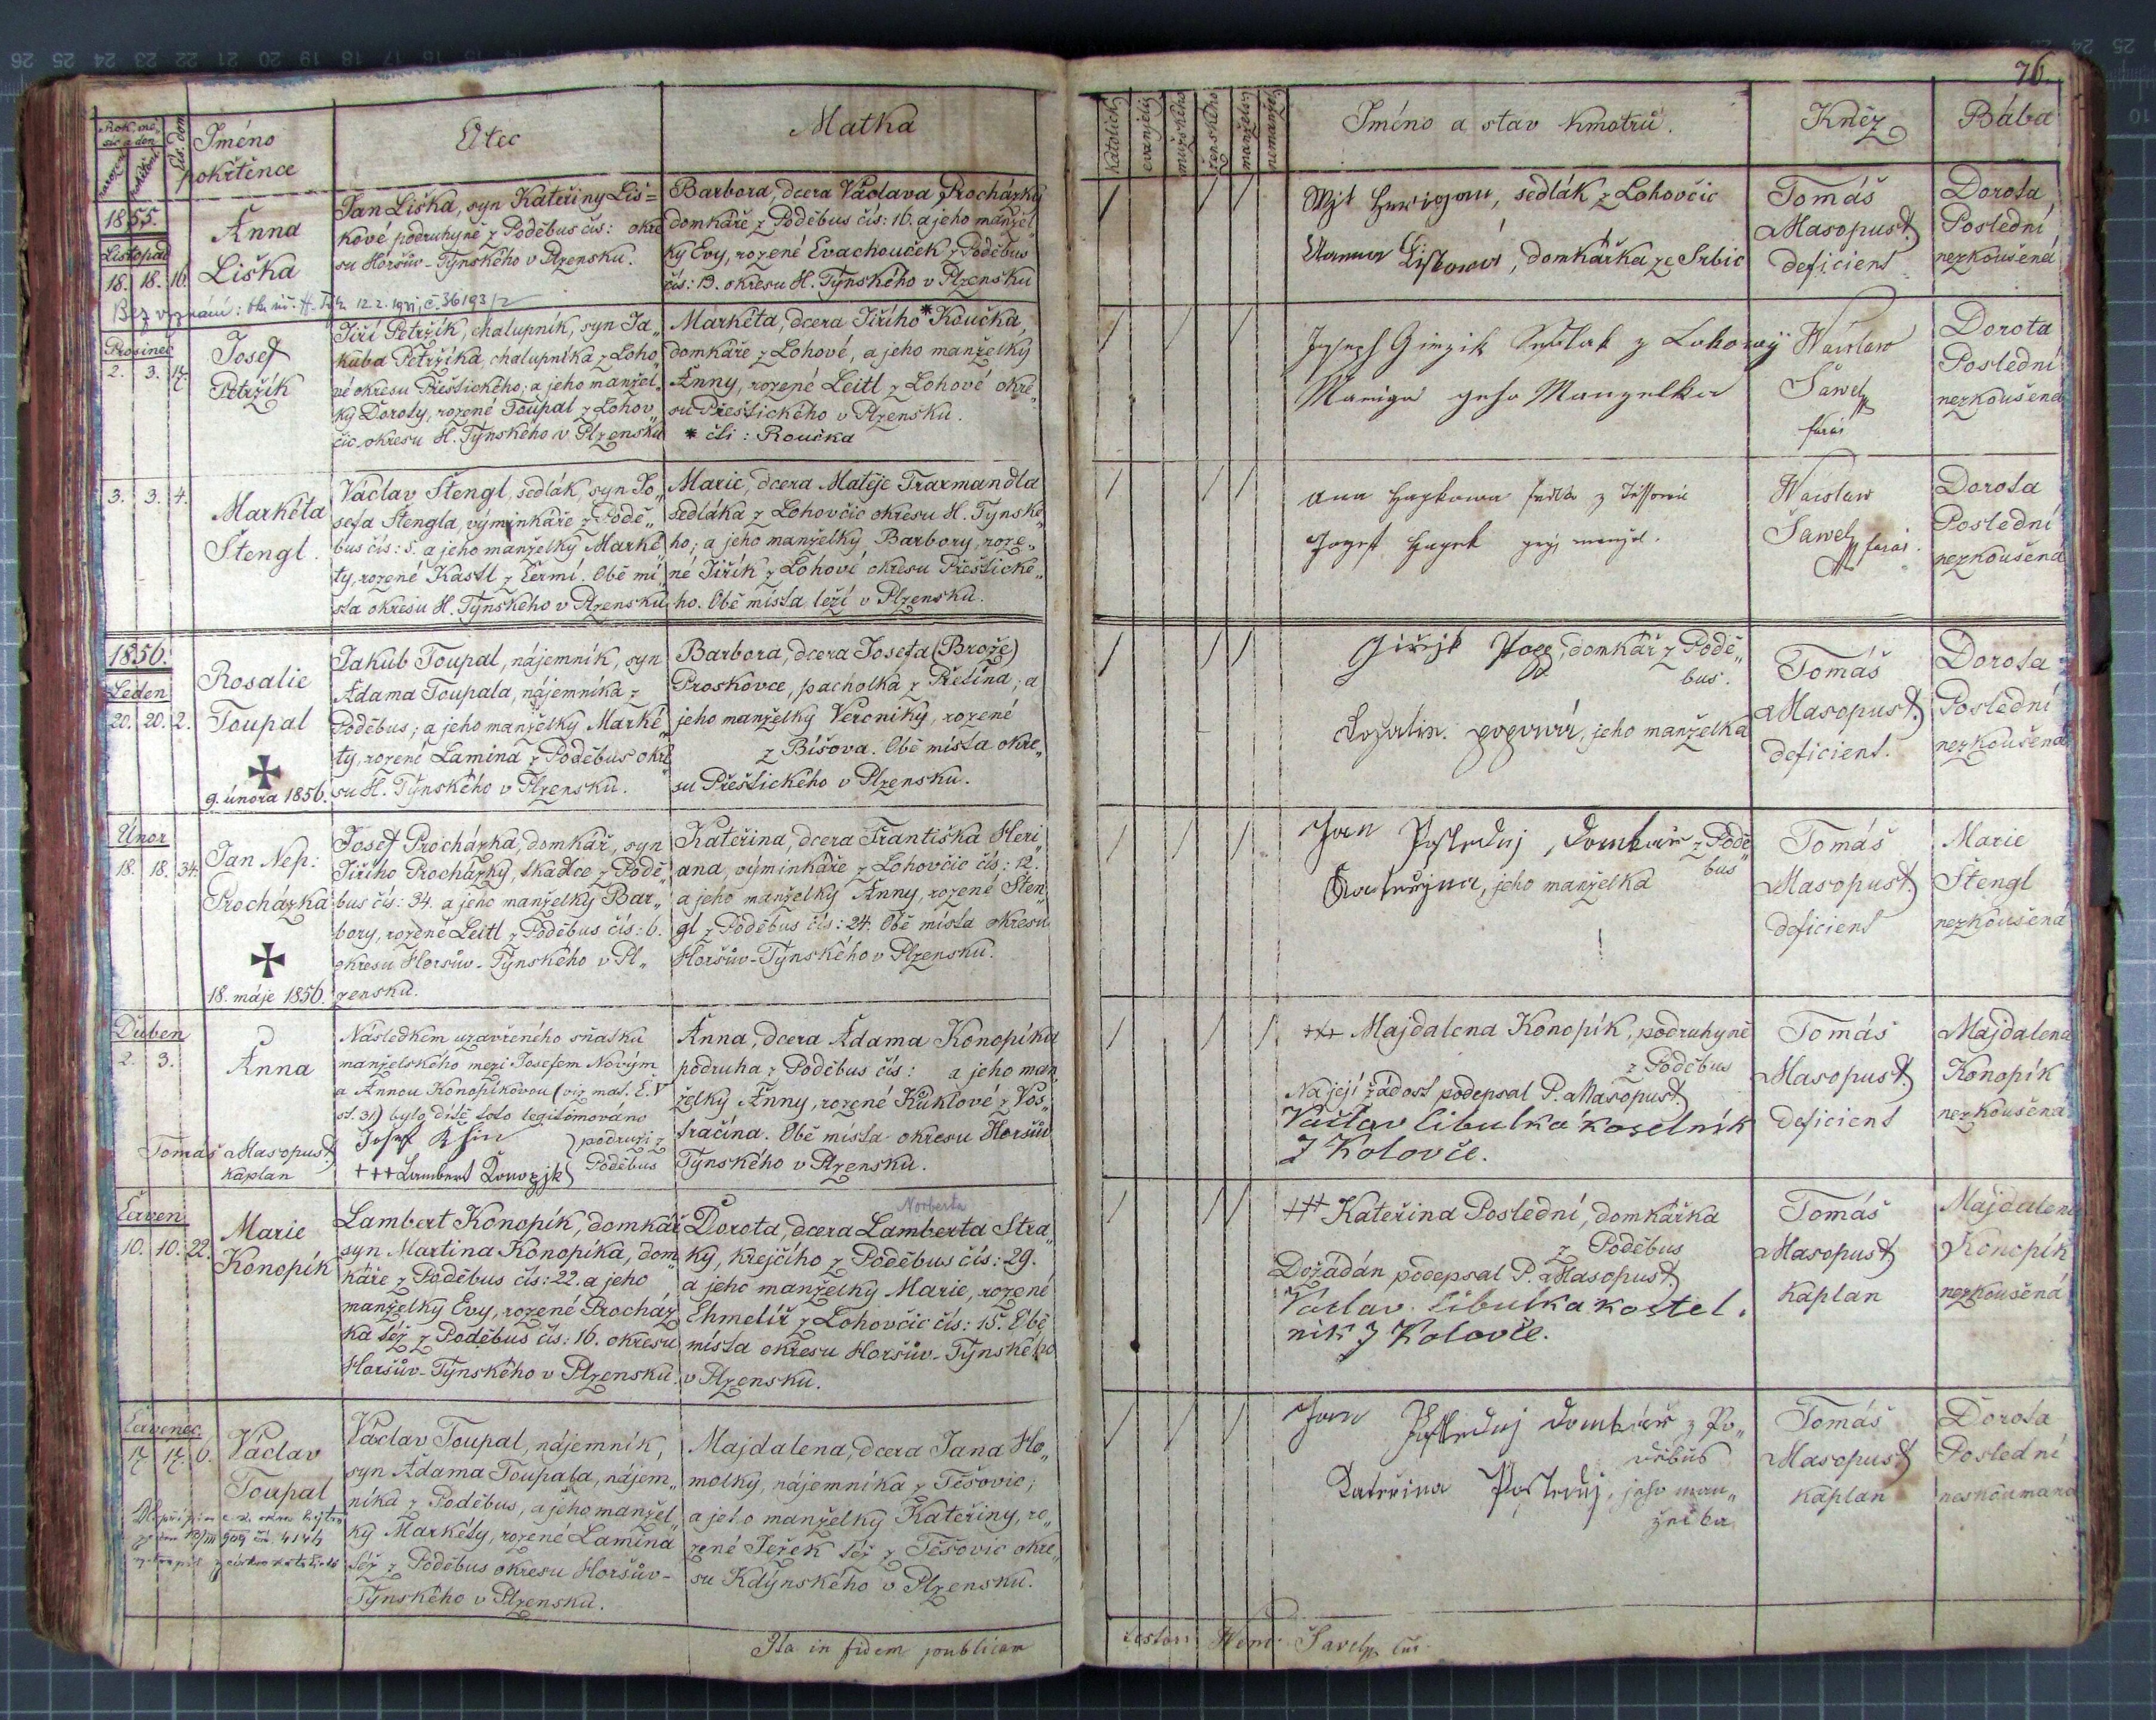 76.
Rok, mě-
síc a den
narození
pokřtění
Čís. dom.
Jméno
pokřtěnce
Otec
Matka
katolický
evanjelický
mužského
ženského
manželský
nemanželský
Jméno a stav kmotrů.
Kněz
Bába
1855
Listopad
18. 18. 16.
Anna
Liška
Jan Liška, syn Kateřiny Liš=
kové podruhyně z Poděbus čís: okre
su Horšův-Týnského v Plzensku.
Barbora, dcera Václava Procházky
domkáře z Poděbus čís: 16. a jeho manžel„
ky Evy, rozené Evachouček z Poděbus
čís: 19. okresu H. Týnského v Plzensku
, sedlák z Lohovčic
Lišková, domkářka ze Srbic
Tomáš
Masopust
deficient
Dorota
Poslední
nezkoušená
Bez vyznání: H. Týn 12. 2. 1921, č. 36193/2
Prosinec
2. 3. 17.
Josef
Petržík
Jiří Petržík, chalupník, syn Ja„
kuba Petržíka, chalupníka z Loho„
vé okresu Přeštického; a jeho manžel„
ky Doroty, rozené Toupal z Lohov„
čic okresu H. Týnského v Plzensku
Markéta, dcera Jiřího *Koučka,
domkáře z Lohové, a jeho manželky
Anny, rozené Leitl z Lohové okre„
su Přeštického v Plzensku.
* čti: Roučka
Joseph Girzik Sedlak z Lohowy
Mariga geho Manzelka
Wáclaw
Šawel
farář
Dorota
Poslední
nezkoušená
3. 3. 4.
Markéta
Štengl.
Václav Štengl, sedlák, syn Jo„
sefa Štengla, výminkáře z Podě„
bus čís: 5. a jeho manželky Marké„
ty, rozené Kastl z Čermí. Obě mí„
sta okresu H. Týnského v Plzensku
Marie, dcera Matěje Traxmandla
sedláka z Lohovčic okresu H. Týnské„
ho; a jeho manželky Barbory, roze„
né Jiřík z Lohoví okresu Přeštické„
ho. Obě místa leží v Plzensku.
Ana Hagkowa z
Jozef Hagek manžel.
Wáclaw
Šawel farář.
Dorota
Poslední
nezkoušená
1856.
Leden
20. 20. 2.
Rosalie
Toupal
9. února 1856.
Jakub Toupal, nájemník, syn
Adama Toupala, nájemníka z
Poděbus; a jeho manželky Marké„
ty, rozené Lamina z Poděbus okre„
su H. Týnského v Plzensku.
Barbora, dcera Josefa (Brože)
Proskovce, pacholka z Přetína; a
jeho manželky Veroniky, rozené
z Bíšova. Obě místa okre„
su Přeštického v Plzensku.
Giřjk , domkář z Podě„
bus.
, jeho manželka
Tomáš
Masopust
deficient.
Dorota
Poslední
nezkoušená
Únor
18. 18. 34.
Jan Nep:
Procházka
18. máje 1856.
Josef Procházka, domkář, syn
Jiřího Procházky, tkadlce z Podě„
bus čís: 34. a jeho manželky Bar„
bory, rozené Leitl z Poděbus čís: 6.
okresu Horšův-Týnského v Pl„
zensku.
Kateřina, dcera Františka Heri„
ana, výminkáře z Lohovčic čís: 12.
a jeho manželky Anny, rozené Šten„
gl z Poděbus čís: 24. Obě místa okresu
Horšův-Týnského v Plzensku.
Jan Posledny, Domkář z Podě„
bus
Kateřina, jeho manželka
Tomáš
Masopust
deficient
Marie
Štengl
nezkoušená
Duben
2. 3.
Anna
Tomáš Masopust
kaplan
Následkem uzavřeného sňatku
manželského mezi Josefem Novým
a Annou Konopíkovou (viz mat. Č. V
st. 31) bylo dítě toto legitimováno
Josef
podruzi z
+++ Lambert Konopjk
Poděbus
Anna, dcera Adama Konopíka
podruha z Poděbus čís: a jeho man„
želky Anny, rozené Kuklové z Vos„
tračína. Obě místa okresu Horšův
Týnského v Plzensku.
+++ Majdalena Konopík, podruhyně
z Poděbus
Na její žádost podepsal P. Masopust
Václav Cibulka kostelník
z Kolovče.
Tomáš
Masopust
deficient
Majdalena
Konopík
nezkoušena
Červen
10. 10. 22.
Marie
Konopík
Lambert Konopík, domkář
syn Martina Konopíka, dom„
káře z Poděbus čís: 22. a jeho
manželky Evy, rozené Procház„
ka též z Poděbus čís: 16. okresu
Horšův-Týnského v Plzensku.
Norberta
Dorota, dcera Lamberta Stra„
ky, krejčího z Poděbus čís: 29.
a jeho manželky Marie, rozené
Chmelíř z Lohovčic čís: 15. Obě
místa okresu Horšův-Týnského
v Plzensku.
+++ Kateřina Poslední, domkářka
z Poděbus
Dožádán podepsal P. Masopust
Václav Cibulka kostel.
ník z Kolovče.
Tomáš
Masopust
kaplan
Majdalena
Konopík
nezkoušená
Červenec
17. 17. 6.
Václav
Toupal
Václav Toupal, nájemník,
syn Adama Toupala, nájem„
níka z Poděbus, a jeho manžel„
ky Markéty, rozené Lamina
též z Poděbus okresu Horšův-
Týnského v Plzensku.
Majdalena, dcera Jana Ho„
molky, nájemníka z Těšovic;
a jeho manželky Kateřiny, ro„
zené Ježek též z Těšovic okre„
su Kdýnského v Plzensku.
Jan Posledny domkář z Po„
děbus
Kateřina Posledny, jeho man„
želka
Tomáš
Masopust
kaplan
Dorota
Poslední
neskoumaná
Ita in fidem publicam
testor: Šavel